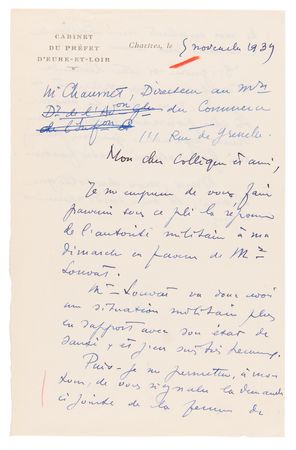 CABINET
DU PRÉFET
D'EURE-ET-LOIR
Chartres, le 5 novembre 1939
Mr Chaumet, Directeur au Mre
Dr de l'
du Commerce
111 Rue de Grenelle
Mon cher collègue et ami,
Je m'empresse de vous faire
parvenir sous ce pli la réponse
de l'autorité militaire à ma
démarche en faveur de Mr
Louvat.
Mr Louvat va donc avoir
une situation militaire plus
en rapport avec son état de
santé, et j'en suis très heureux.
Puis-je me permettre, à mon
tour, de vous signaler la demande
ci jointe de la femme de